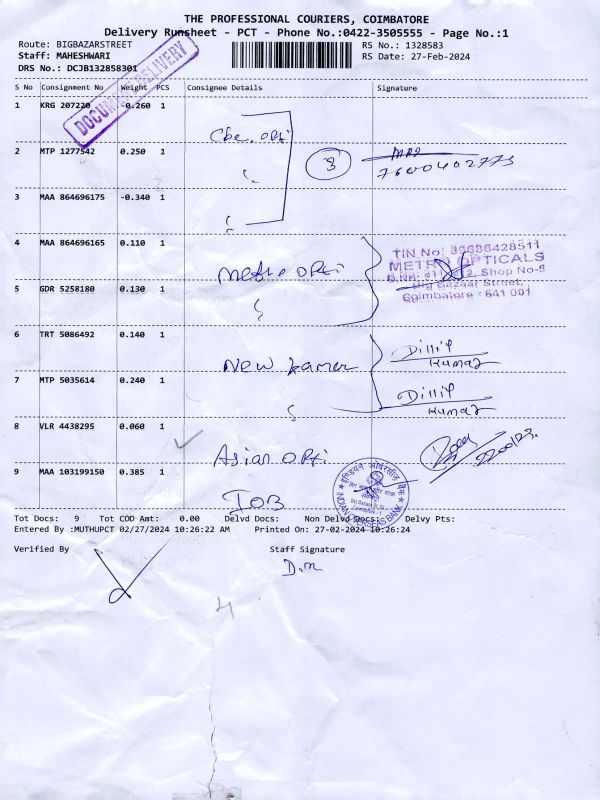 THE PROFESSIONAL COURIERS, COIMBATORE
Delivery Runsheet - PCT - Phone No.:0422-3505555 - Page No.:1
Route: BIGBAZARSTREET
RS No.: 1328583
Staff: MAHESHWARI
RS Date: 27-Feb-2024
DRS No.: DCJB132858301
DOCUMENT DELIVERY
S No Consignment No Weight PCS Consignee Details Signature
1 KRG 207220 -0.260 1
Cbe. opti
2 MTP 1277542 0.250 1
3
7600402773
3 MAA 864696175 -0.340 1
4 MAA 864696165 0.110 1
Metro opti
TIN No: 33688428511
METRO OPTICALS
Shop No-6
Big Bazaar Street,
Coimbatore - 641 001
5 GDR 5258180 0.130 1
6 TRT 5086492 0.140 1
New kamer
Dillip
Kumar
7 MTP 5035614 0.240 1
Dillip
Kumar
8 VLR 4438295 0.060 1
Asian opti
9 MAA 103199150 0.385 1
IOB
इण्डियन ओवरसीज़ बैंक
INDIAN OVERSEAS BANK
Tot Docs: 9 Tot COD Amt: 0.00 Delvd Docs: Non Delvd Docs: Delvy Pts:
Entered By :MUTHUPCT 02/27/2024 10:26:22 AM Printed On: 27-02-2024 10:26:24
Verified By Staff Signature
D.m
4